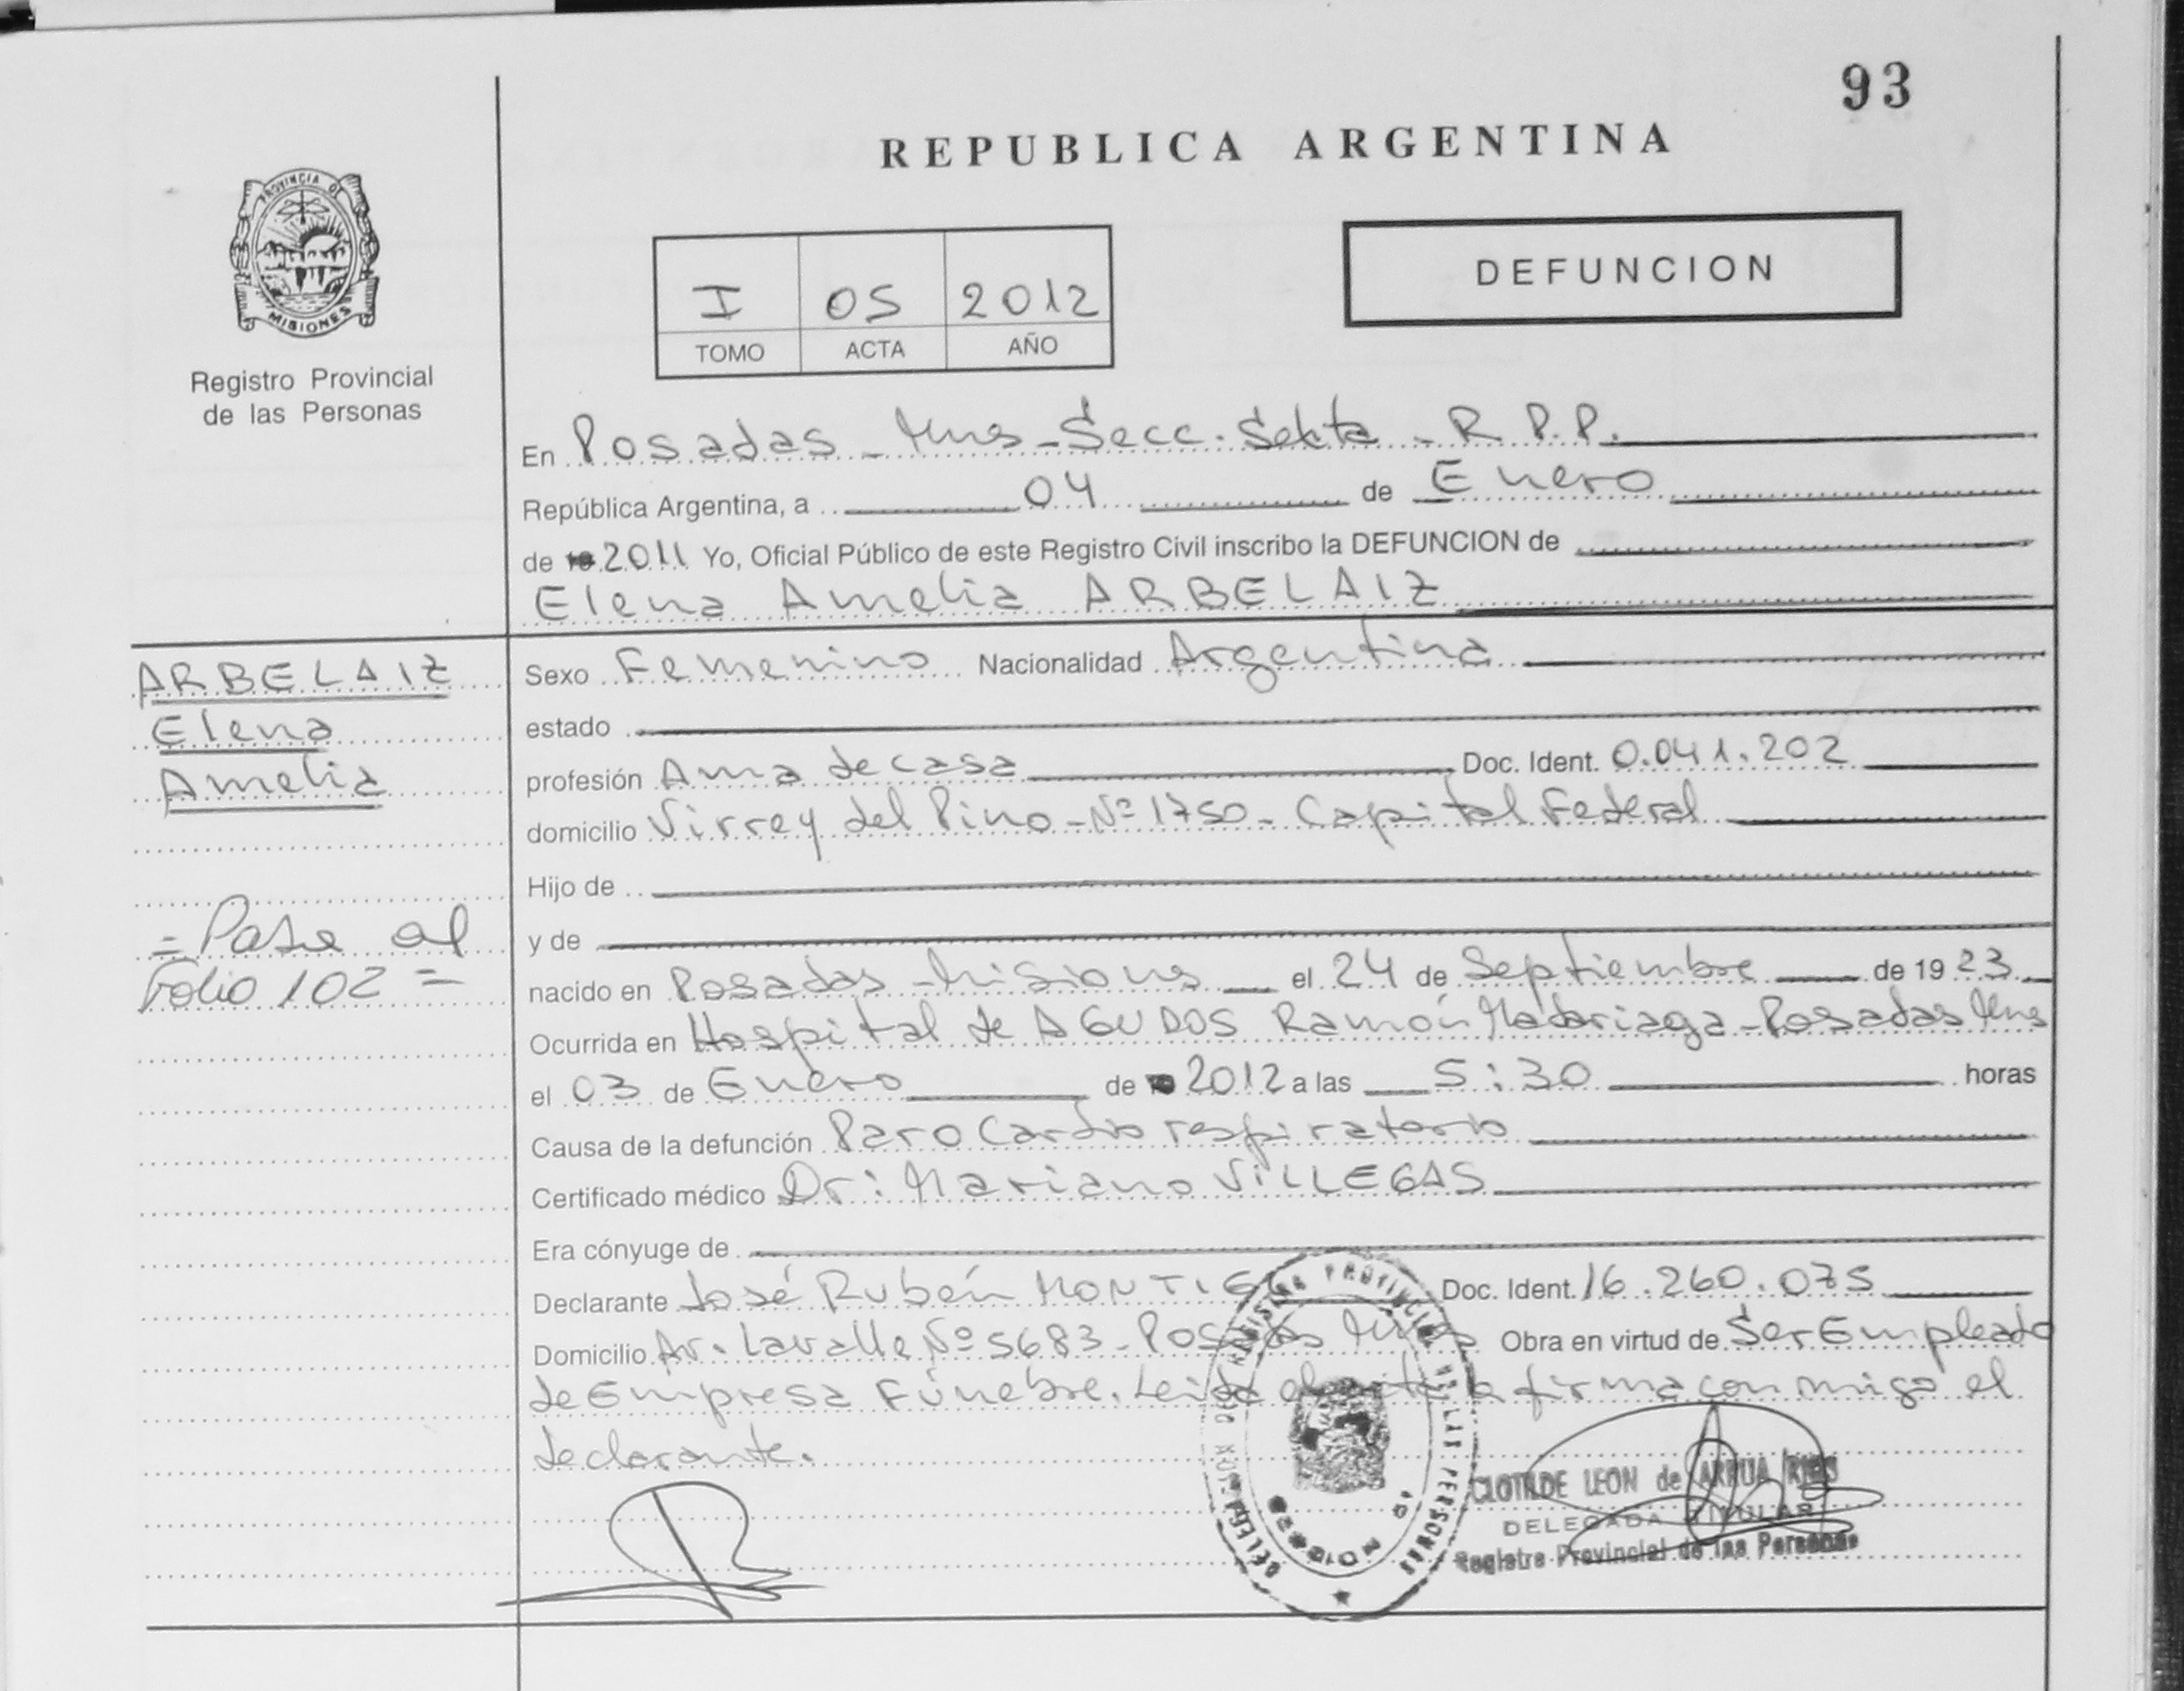 93
REPUBLICA ARGENTINA
PROVINCIA DE
MISIONES
Registro Provincial
de las Personas
I 05 2012
TOMO ACTA AÑO
DEFUNCION
En Posadas - Mns - Secc. Sexta - R.P.P.
República Argentina, a 04 de Enero
de 2011 Yo, Oficial Público de este Registro Civil inscribo la DEFUNCION de
Elena Amelia ARBELAIZ
ARBELAIZ
Elena
Amelia
= Pase al
Folio 102 =
Sexo Femenino Nacionalidad Argentina
estado
profesión Ama de casa Doc. Ident. 0.041.202
domicilio Virrey del Pino - Nº 1750 - Capital Federal
Hijo de
y de
nacido en Posadas - Misiones el 24 de Septiembre de 1923
Ocurrida en Hospital de AGUDOS Ramón Madariaga - Posadas Mns
el 03 de Enero de 2012 a las 5:30 horas
Causa de la defunción Paro Cardio respiratorio
Certificado médico Dr: Mariano VILLEGAS
Era cónyuge de
Declarante José Rubén MONTIEL Doc. Ident. 16.260.075
Domicilio Av. Lavalle Nº 5683 - Posadas Mns Obra en virtud de Ser Empleado
de Empresa Fúnebre. Leida el acta la firma con migo el
declarante.
REGISTRO PROVINCIAL DE LAS PERSONAS
CLOTILDE LEON de ARRUA
DELEGADA TITULAR
Registro Provincial de las Personas